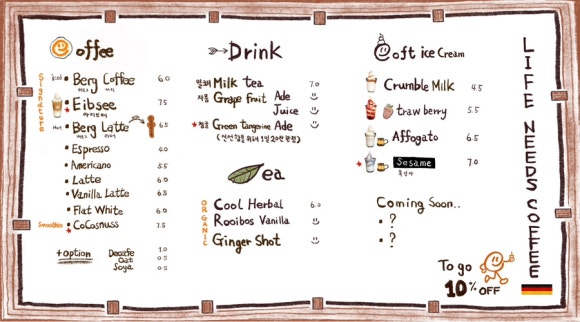 Coffee
Signature
iced
Berg Coffee 6.0
Eibsee 7.5
아이브제
Hot
Berg Latte 6.5
Espresso 4.0
Americano 5.5
Latte 6.0
Vanilla Latte 6.5
Flat White 6.0
Smoothie CoCosnuss 7.5
+option
Decaffe 1.0
Oat 0.5
Soya 0.5
Drink
밀크티 Milk tea 7.0
자몽 Grape fruit Ade
Juice
청귤 Green tangerine Ade
Tea
ORGANIC
Cool Herbal 6.0
Rooibos Vanilla
Ginger Shot
Soft ice Cream
Crumble Milk 4.5
Strawberry 5.5
Affogato 6.5
Sesame 7.0
흑임자
Coming Soon..
?
?
To go
10% OFF
LIFE NEEDS COFFEE